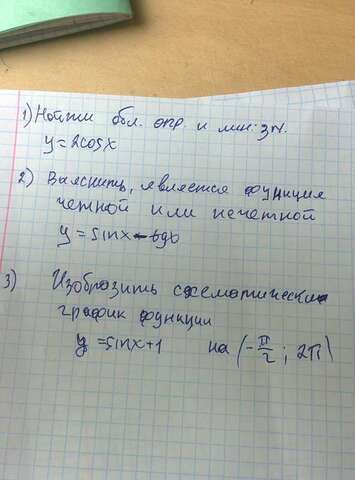 1) Найти обл. опр. и мн. зн.
y = 2cosx
2) Выяснить, является функция
четной или нечетной
y = sinx - tgx
3) Изобразить схематически
график функции
y = sinx+1 на (-π/2; 2π)